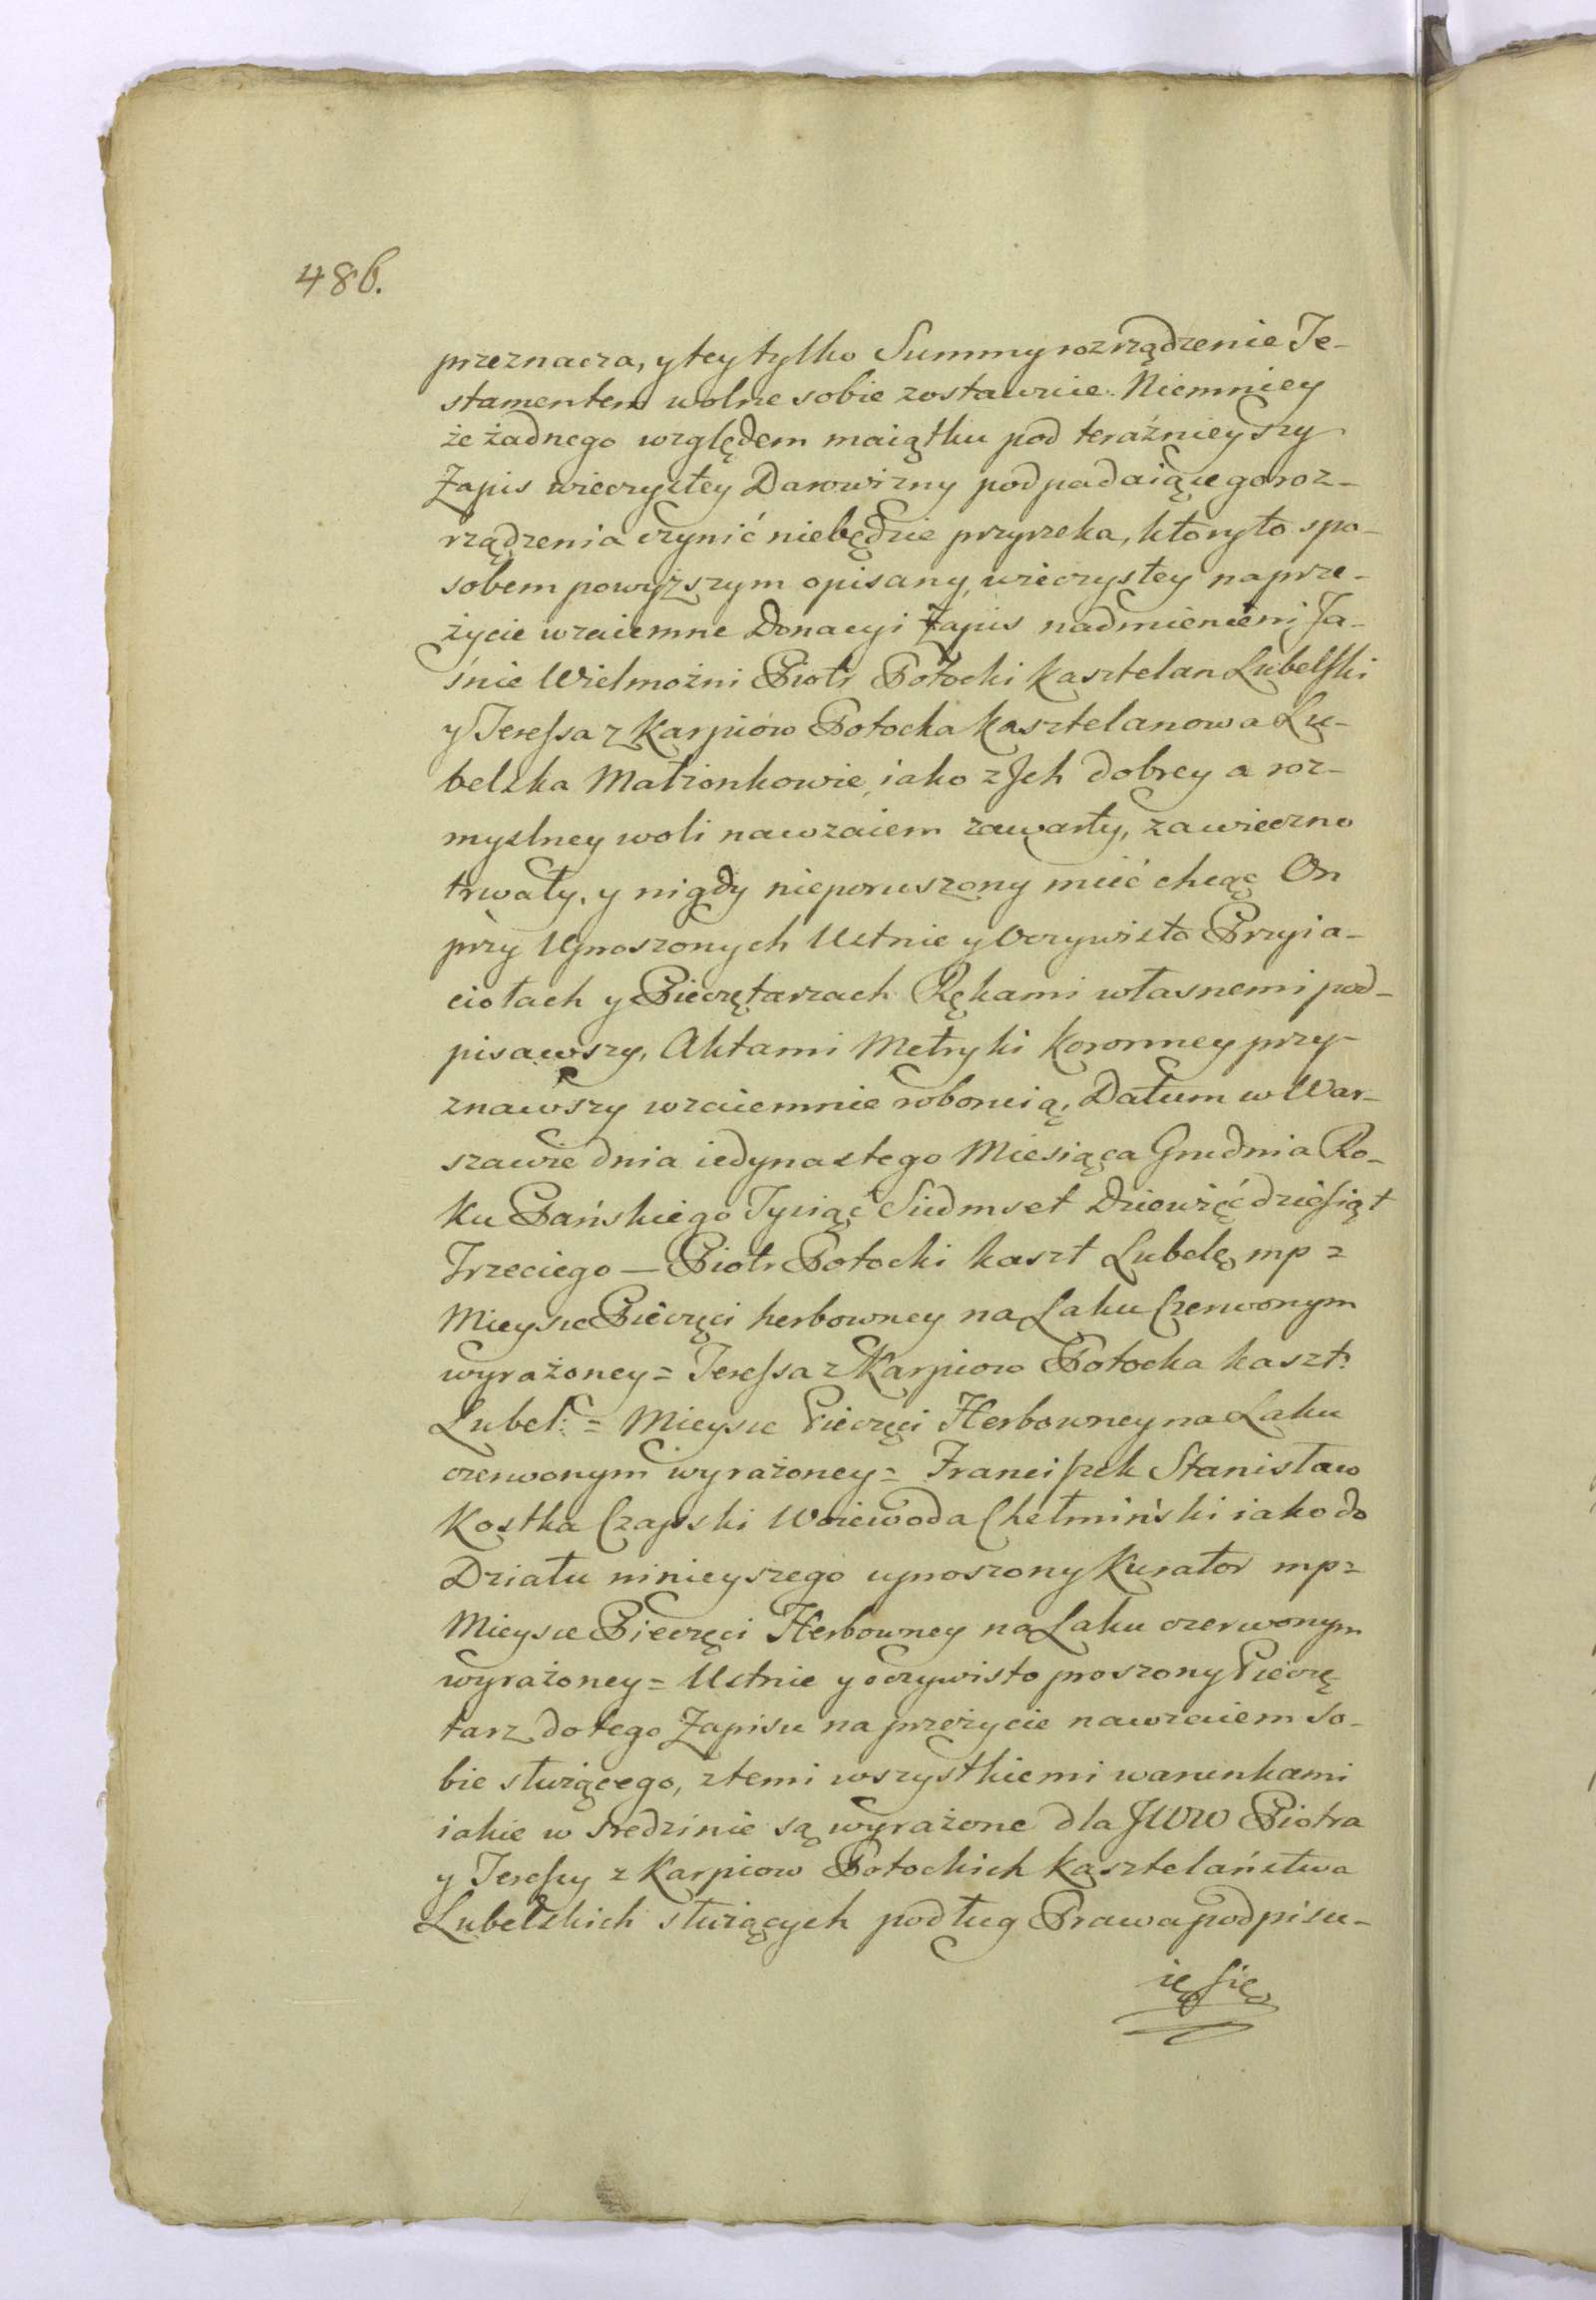 486.
przeznacza, y tey tylko Summy rozrządzenie Te-
stamentem wolne sobie zostawuie. Niemniey
że żadnego względem maiątku pod teraźnieyszy
Zapis wieczystey Darowizny podpadaiącego roz-
rządzenia czynić niebędzie przyrzeka, ktoryto spo-
sobem powyższym opisany, wieczystey na prze-
życie wzaiemne Donacyi Zapis nadmienieni Ja-
śnie Wielmożni Piotr Potocki Kasztelan Lubelski
y Teressa z Karpiow Potocka Kasztelanowa Lu-
belska Małżonkowie, iako z Jch dobrey a roz-
myslney woli nawzaiem zawarty, za wieczno
trwały, y nigdy nieporuszony mieć chcąc On
przy Uproszonych Ustnie y Oczywisto Przyia-
ciołach y Pieczętarzach Rękami własnemi pod-
pisawszy, Aktami Metryki Koronney przy-
znawszy wzaiemnie roboruią, Datum w War-
szawie dnia iedynastego Miesiąca Grudnia Ro-
ku Pańskiego Tysiąc Siedmset Dziewięćdziesiąt
Trzeciego — Piotr Potocki kaszt Lubel mp =
Mieysce Pieczęci herbowney na Laku Czerwonym
wyrażoney = Teressa z Karpiow Potocka kaszt:
Lubel: = Mieysce Pieczęci Herbowney na Laku
czerwonym wyrażoney = Franciszek Stanisław
Kostka Czapski Woiewoda Chełmiński iako do
Działu ninieyszego uproszony Kurator mp =
Mieysce Pieczęci Herbowney na Laku czerwonym
wyrażoney = Ustnie y oczywisto proszony Pieczę
tarz do tego Zapisu na przeżycie nawzaiem so-
bie służącego, z temi wszystkiemi warunkami
iakie w sredzinie są wyrażone dla JWW Piotra
y Teressy z Karpiow Potockich Kasztelaństwa
Lubelskich służących podług Prawa podpisu-
ię się